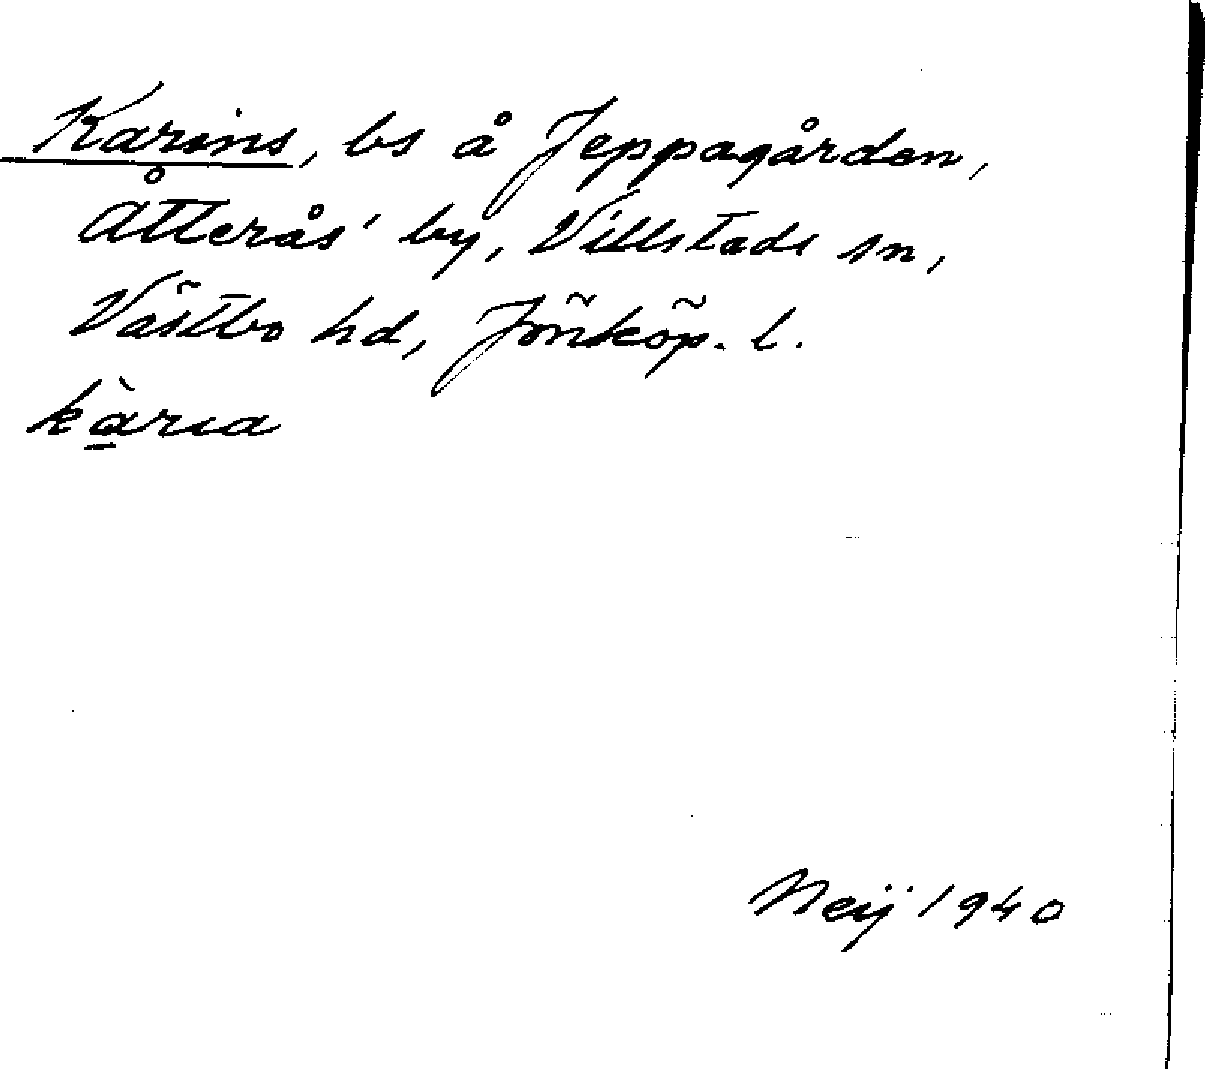 Karins, bs å Jeppagården,
Åtterås' by, Villstads sn,
Västbo hd, Jönköp. l.
kàrıa
Neij 1940